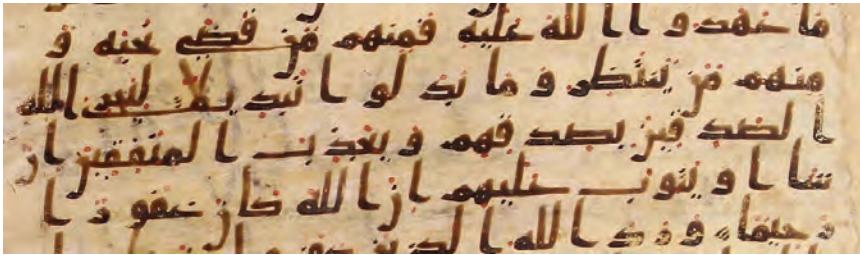 ما عهدوا الله عليه فمنهم من قضى نحبه و
منهم من ينتظر وما بدلوا تبديلا ليجزى الله
الصدقين بصدقهم ويعذب المنفقين ان
شا او يتوب عليهم ان الله كان غفورا
رحيما ورد الله الذين كفروا